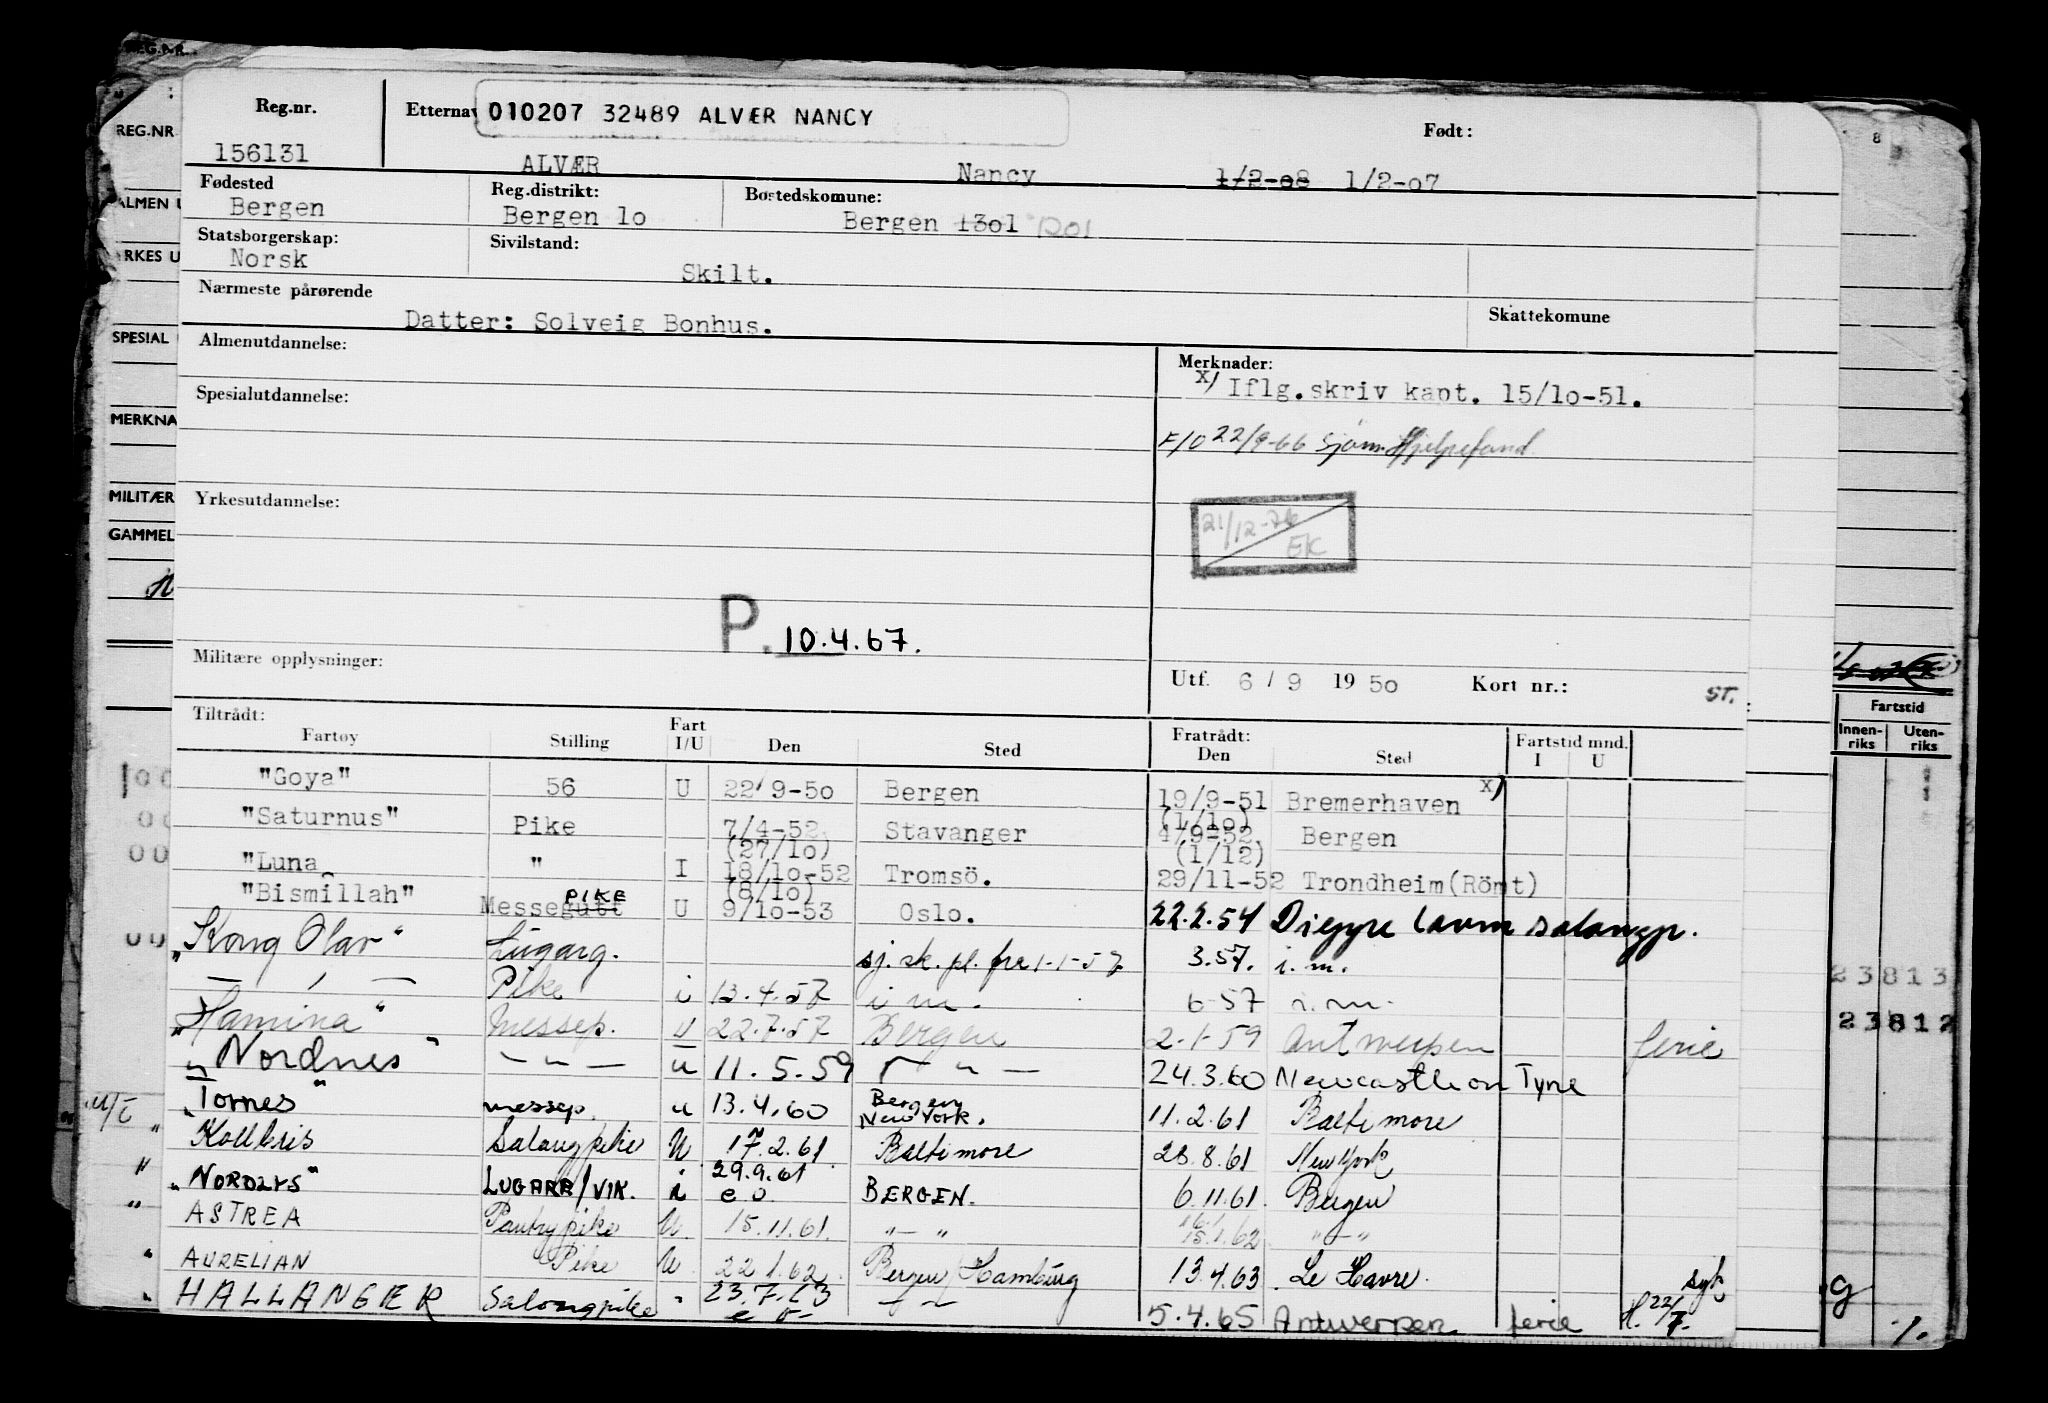 REG.NR.
Reg.nr. Etternav 010207 32489 ALVÆR NANCY Født: 8
REG.NR
156131 ALVÆR Nancy 1/2-08 1/2-07
Fødested Reg.distrikt: Bostedskomune:
ALMEN U Bergen Bergen 10 Bergen 1301 1201
Statsborgerskap: Sivilstand:
YRKES U Norsk Skilt.
Nærmeste pårørende Skattekomune
Datter: Solveig Bonhus.
SPESIAL Almenutdannelse: Merknader:
x/ Iflg.skriv kapt. 15/10-51.
Spesialutdannelse:
MERKNA F/O 22/9-66 Sjøm. Hjelpefond
MILITÆR Yrkesutdannelse: 21/12-76 EK
GAMMEL
P. 10.4.67.
Militære opplysninger: Utf. 6 / 9 19 50 Kort nr.: ST.
Tiltrådt: Fratrådt: Fartstid
Fartøy Stilling Fart I/U Den Sted Den Sted Fartstid mnd. I U Innen-riks Uten-riks
"Goya" 56 U 22/9-50 Bergen 19/9-51 Bremerhaven x/
(1/10)
"Saturnus" Pike 7/4-52 Stavanger 4/9-52 Bergen
(27/10) (1/12)
"Luna " I 18/10-52 Tromsö. 29/11-52 Trondheim(Römt)
(8/10)
"Bismillah" Messegutt PIKE U 9/10-53 Oslo. 22.2.54 Dieppe salongp.
"Kong Olav" Lugarg. sj.sk.pl. fra 1-1-57 3.57. i.m.
— " — Pike i 13.4.57 i m. 6-57 i.m. 23813
"Hamina" messep. U 22.7.57 Bergen 2-1-59 Antwerpen ferie 23812
"Nordnes" — " — u 11.5.59 — " — 24.3.60 Newcastle on Tyne
M/T "Tornes" messep. u 13.4.60 Bergen New York. 11.2.61 Baltimore
" Kollbris Salongpike U 17.2.61 Baltimore 28.8.61 New York
" "NORDLYS" LUGARP/VIK. i 29.9.61 e o. BERGEN. 6.11.61. Bergen
" ASTREA Pantrypike U. 15.11.61. " — " 16.1. 15.1.62 " — "
" AURELIAN Pike U. 22.1.62. Bergen/Hamburg 13.4.63. Le Havre. syk
" HALLANGER Salongpike " 23.7.63 e o — " — 5.4.65 Antwerpen ferie H. 22/7.